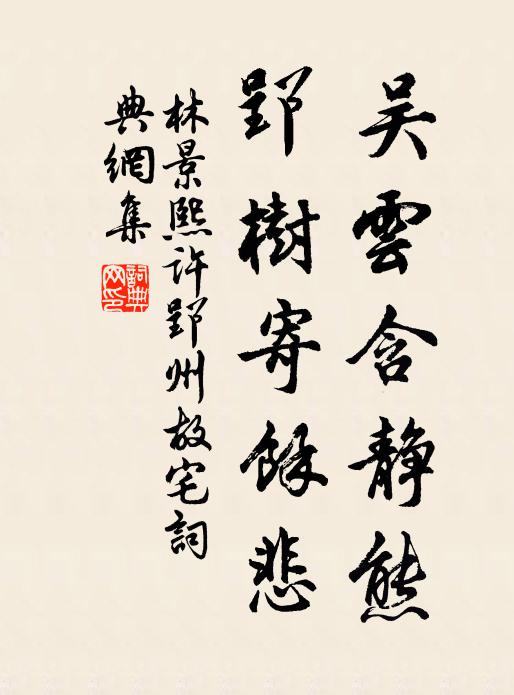 吴雲含靜態
郢樹寄餘悲
林景熙許郢州故宅詞
典網集
詞典網印